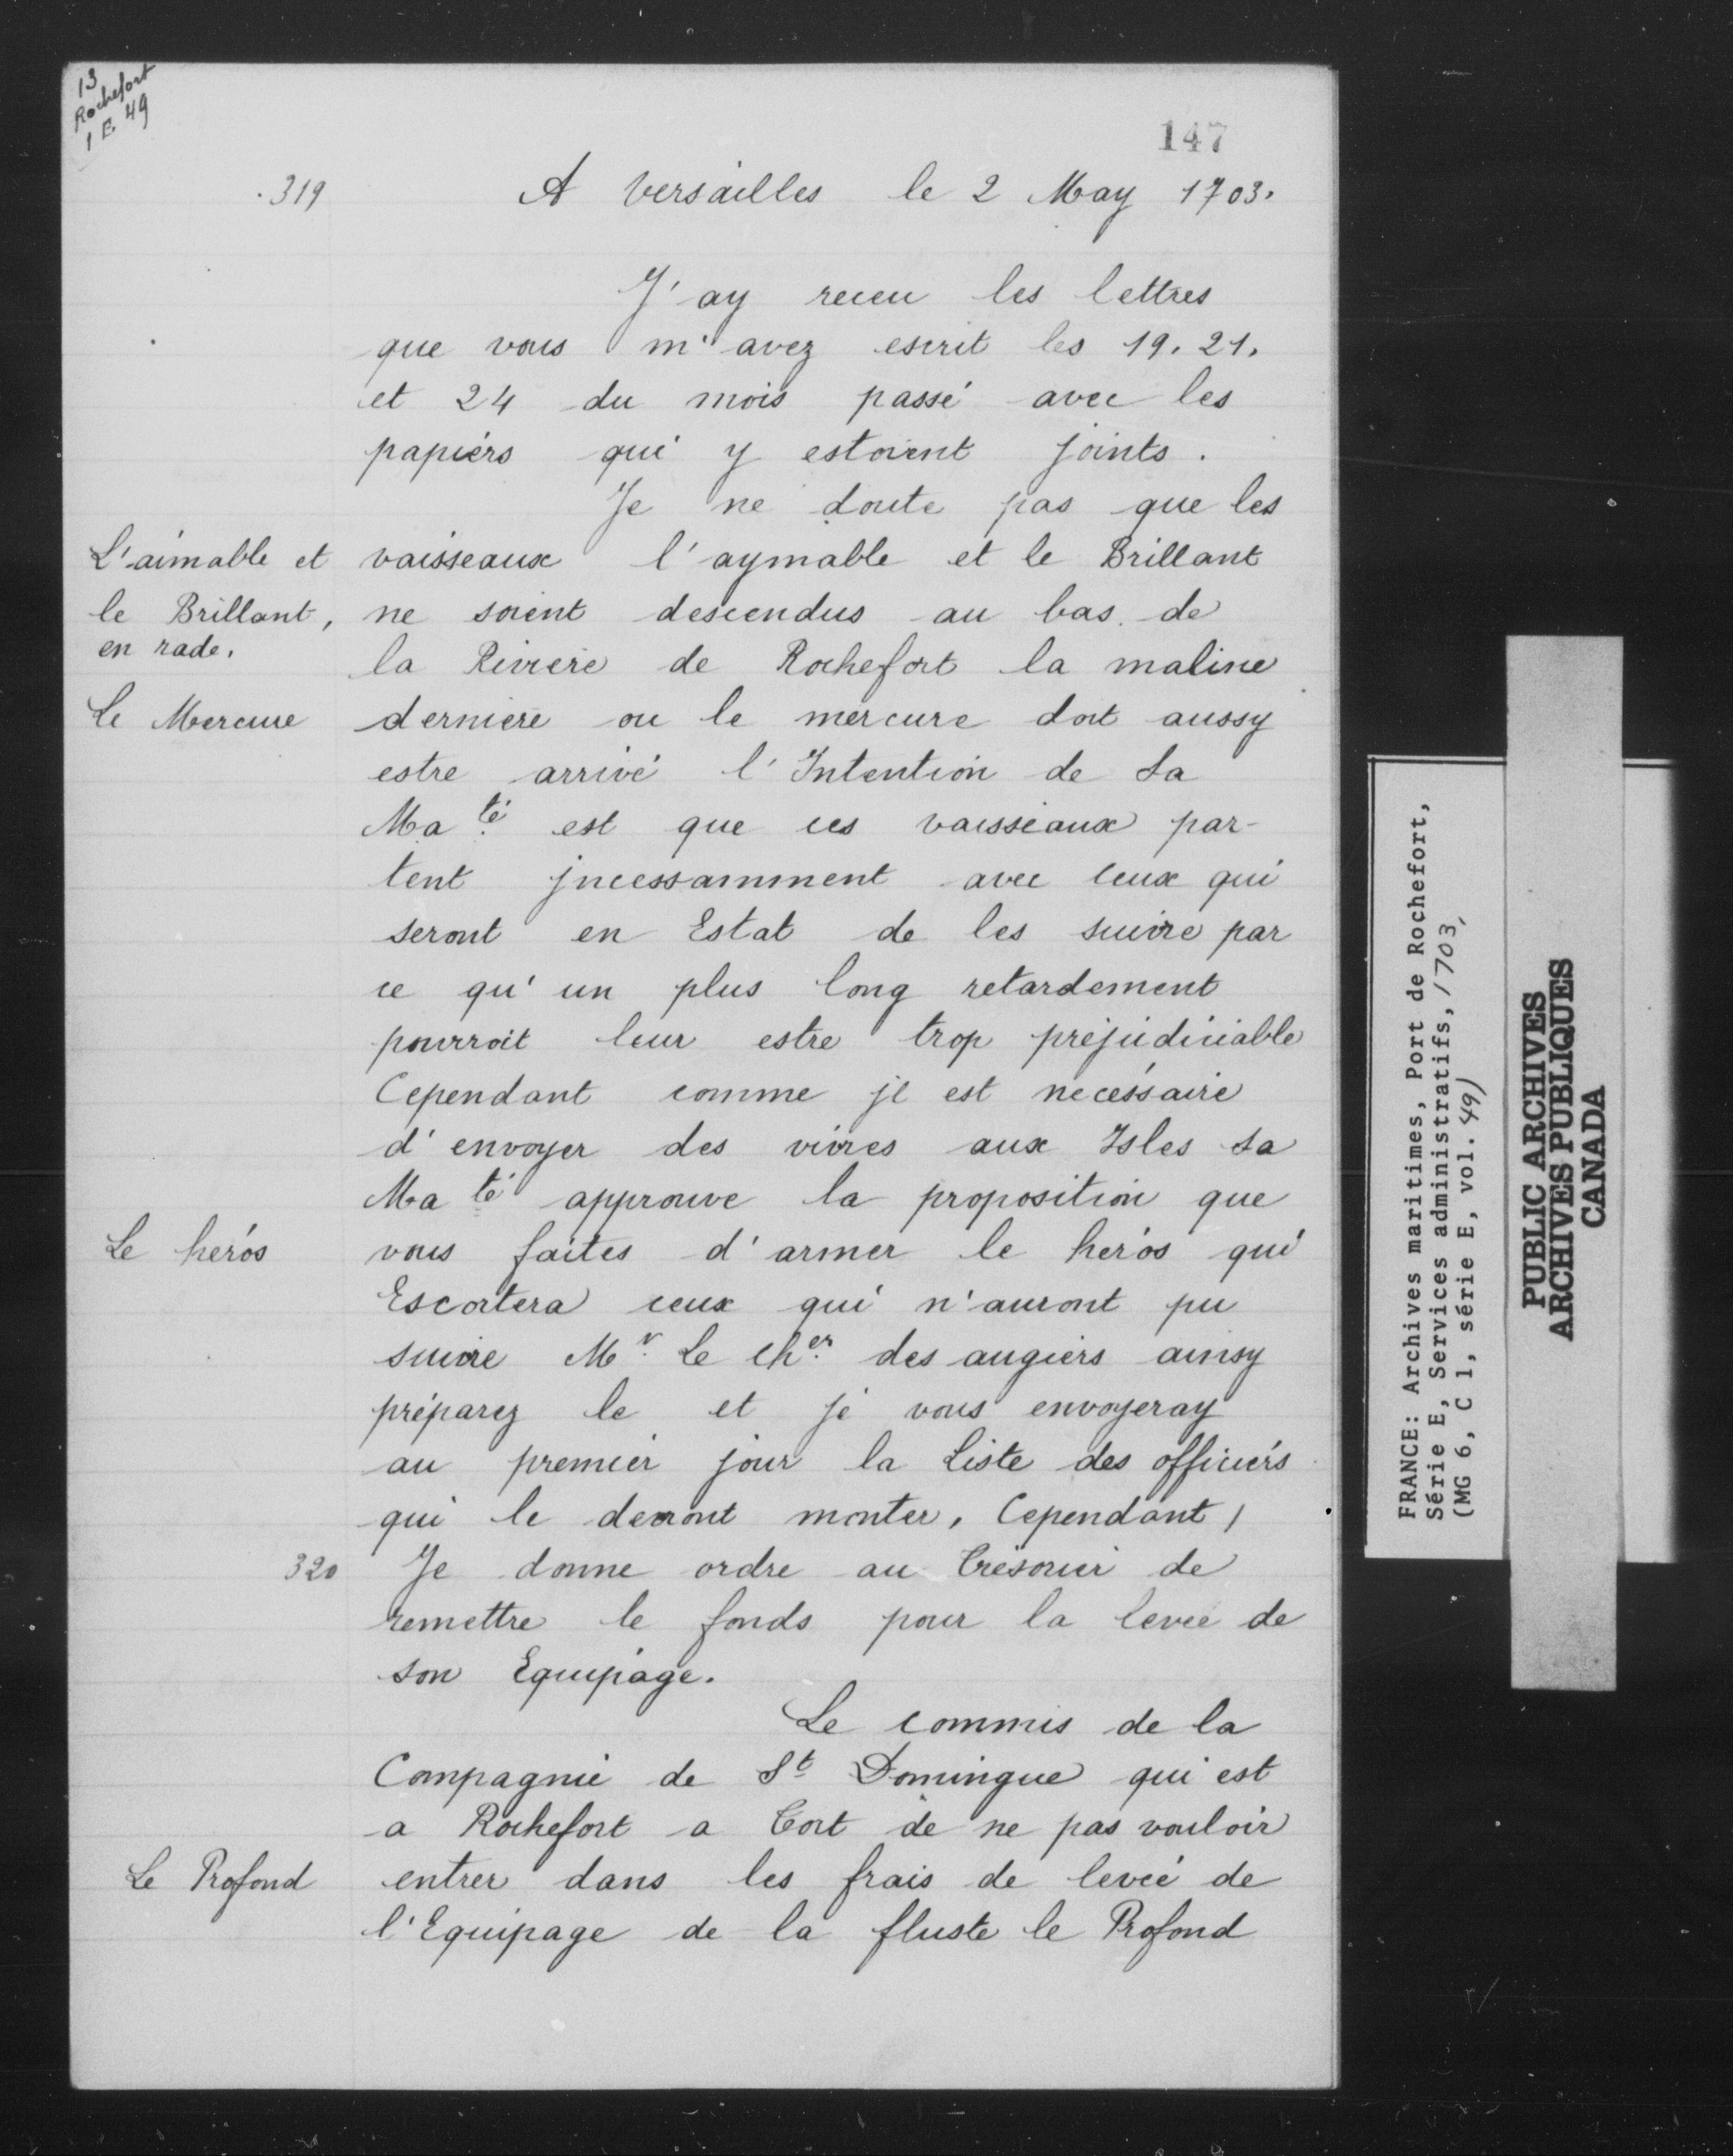 13
Rochefort
1 E. 49
147
319
A Versailles le 2 May 1703.
J'ay receu les lettres
que vous m'avez escrit les 19. 21.
et 24 du mois passé avec les
papiers qui y estoient joints.
Je ne doute pas que les
L'aimable et
le Brillant,
en rade.
vaisseaux l'aymable et le Brillant
ne soient descendus au bas de
la Riviere de Rochefort la maline
Le Mercure
derniere ou le mercure doit aussy
estre arrivé l'Intention de Sa
Ma té est que ces vaisseaux par-
tent jncessamment avec ceux qui
seront en Estat de les suivre par
ce qu'un plus long retardement
pourroit leur estre trop préjudiciable
Cependant comme jl est necessaire
d'envoyer des vivres aux Isles Sa
Ma té approuve la proposition que
Le herós
vous faites d'armer le herós qui
Escortera ceux qui n'auront pu
suivre Mr. Le Cher. des augiers ainsy
préparez le et je vous envoyeray
au premier jour la Liste des officiers
qui le devront monter, Cependant,
320
Je donne ordre au Trésorier de
remettre le fonds pour la levée de
son Equipage.
Le commis de la
Compagnie de St Domingue qui est
a Rochefort a Tort de ne pas vouloir
Le Profond
entrer dans les frais de levée de
l'Equipage de la fluste le Profond
FRANCE: Archives maritimes, Port de Rochefort,
Série E, Services administratifs, 1703,
(MG 6, C 1, série E, vol. 49)
PUBLIC ARCHIVES
ARCHIVES PUBLIQUES
CANADA